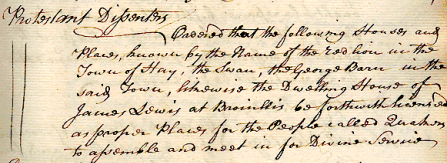 Protestant Dissenters
Ordered that the following Houses and
Places, known by the Name of the Red lion in the
Town of Hay, the Swan, the George Barn in the
said Town, likewise the Dwelling House of
James Lewis at Broinllis be forthwith licensed
as proper Places for the People called Quakers
to assemble and meet in for Divine Service